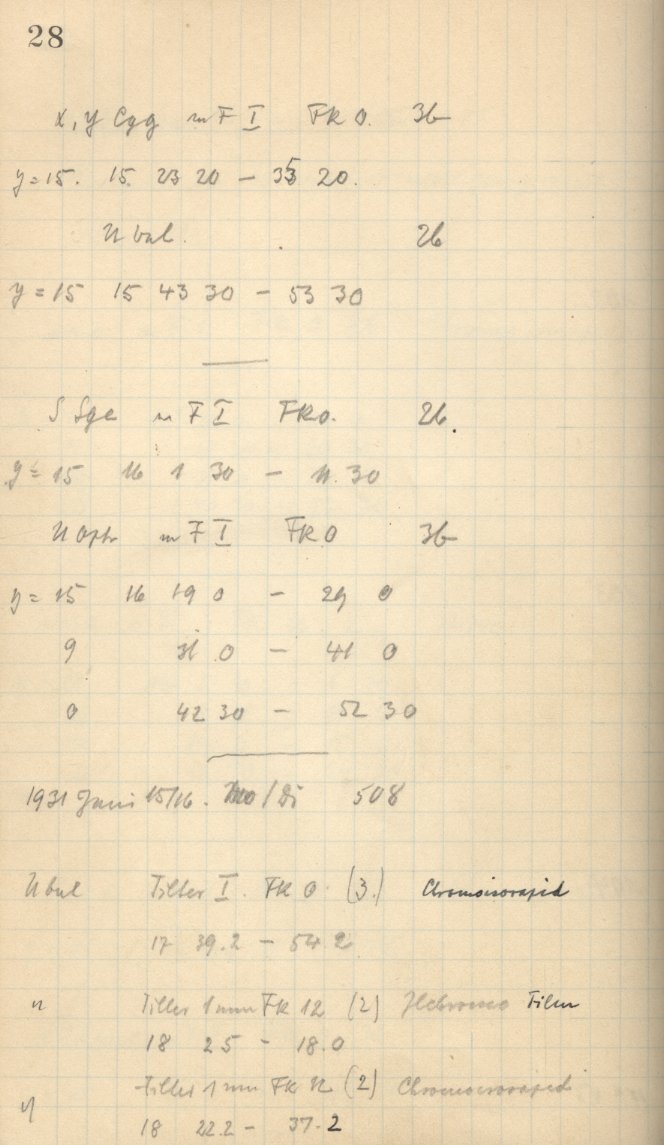 28
x, y Cyg m F I FK 0. 36
y = 15. 15 23 20 – 33 20.
U bul. 26
y = 15 15 43 30 – 53 30
S Sge m F I FK 0. 26.
y = 15 16 1 30 – 11. 30
U Oph m F I FK 0 36
y = 15 16 19 0 – 29 0
9 31 0 – 41 0
0 42 30 – 52 30
1931 Juni 15/16. Mo/Di 508
U bul Filter I. FK 0. (3.) Chromoisorapid
17 39.2 – 54.2
" Filter 1 mm FK 12 (2) Film
18 25 – 18.0
" Filter 1 mm FK 12 (2) Chromoisorapid
18 22.2 – 37.2